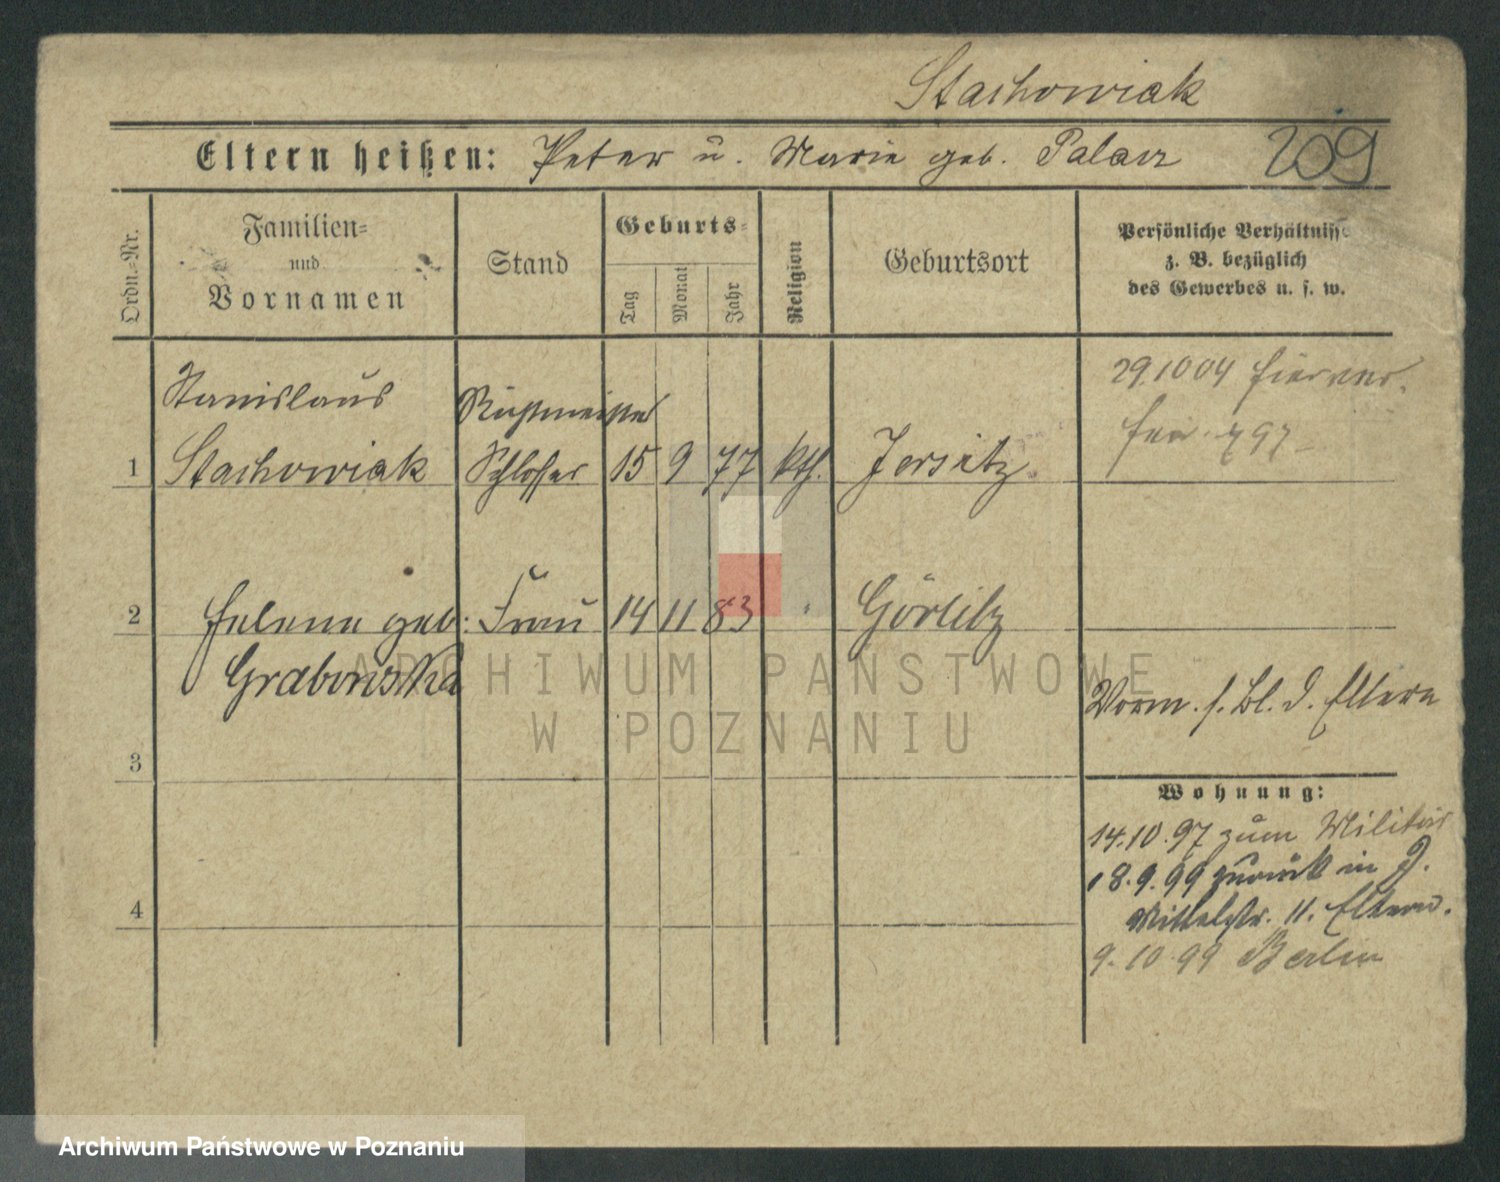 Stachowiak
Eltern heißen: Peter u. Marie geb. Palacz 209
Ordn.-Nr.
Familien-
und
Vornamen
Stand
Geburts-
Tag
Monat
Jahr
Religion
Geburtsort
Persönliche Verhältnisse
z. B. bezüglich
des Gewerbes u. s. w.
Stanislaus
1 Stachowiak Schlosser 15 9 77 kth. Jersitz
29.10 04
797
2 Helene geb: Frau 14 11 83 Görlitz
Grabowska
ARCHIWUM PAŃSTWOWE
W POZNANIU
Vorm. s. Bl. d. Eltern
3
Wohnung:
14.10.97 zum Militär
18.9.99 zurück in J.
4
Mittelstr. 11. Eltern.
9.10.99 Berlin
Archiwum Państwowe w Poznaniu